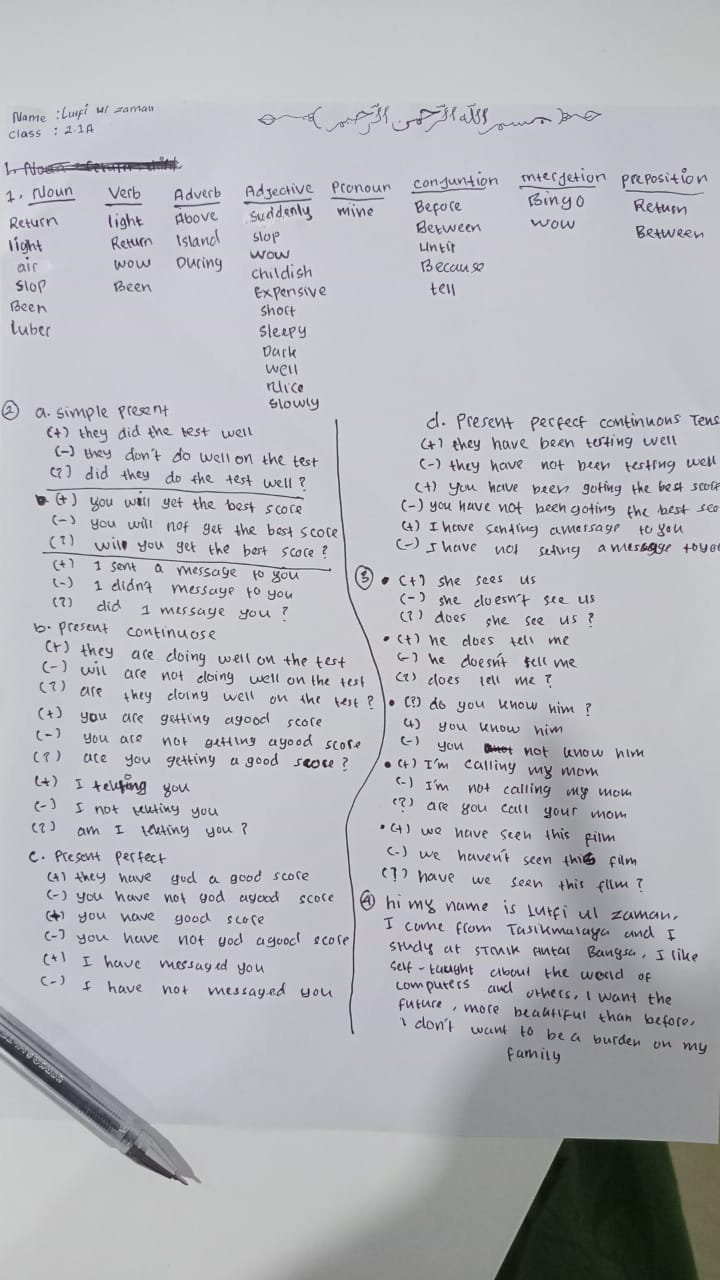 Name : Lutfi ul zaman
class : 2.1A
بسم الله الرحمن الرحيم
1. Noun
1. Noun Verb Adverb Adjective Pronoun conjuntion intercjetion preposition
Return light Above suddenly mine Before Bingo Return
light Return Island slop Between wow Between
air wow During wow Until
slop Been childish Because
Been Expensive tell
luber short
sleepy
Dark
well
Nice
slowly
2 a. simple present
(+) they did the test well
(-) they don't do well on the test
(?) did they do the test well ?
(+) you will get the best score
(-) you will not get the best score
(?) will you get the best score ?
(+) I sent a message to you
(-) I didn't message to you
(?) did I message you ?
b. present continuose
(+) they are doing well on the test
(-) wil are not doing well on the test
(?) are they doing well on the test ?
(+) you are getting agood score
(-) you are not getting agood score
(?) are you getting a good score ?
(+) I you
(-) I not you
(?) am I you ?
c. present perfect
(+) they have god a good score
(-) you have not god agood score
(+) you have good score
(-) you have not god agood score
(+) I have messaged you
(-) I have not messaged you
d. present perfect continuous Tens
(+) they have been testing well
(-) they have not been testing well
(+) you have been goting the best score
(-) you have not been goting the best sco
(+) I have sending amessage to you
(-) I have not seting a message toyou
3 • (+) she sees us
(-) she doesn't see us
(?) does she see us ?
• (+) he does tell me
(-) he doesn't tell me
(?) does tell me ?
• (?) do you know him ?
(+) you know him
(-) you not know him
• (+) I'm calling my mom
(-) I'm not calling my mom
(?) are you call your mom
• (+) we have seen this film
(-) we haven't seen this film
(?) have we seen this film ?
4 hi my name is Lutfi ul zaman,
I come from Tasikmalaya and I
study at STMIK Antar Bangsa, I like
self-taught about the world of
computers and others, I want the
future, more beautiful than before,
I don't want to be a burden on my
family